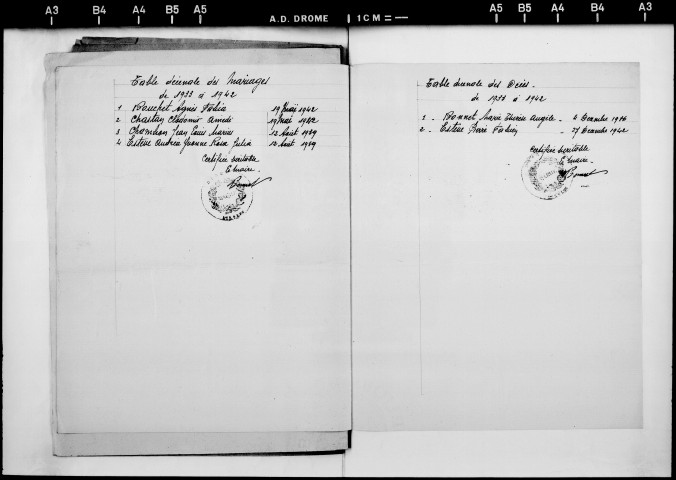 A3 B4 A4 B5 A5 A.D. DROME 1 CM A5 B5 A4 B4 A3
Table décennale des Mariages
de 1933 à 1942
1 Bouchet Agnès 19 Mai 1942
2 Chastan Clodomir Amédé 19 Mai 1942
3 Chambon Jean Louis Marius 12 Août 1939
4 Estève Andréa Jeanne Rosa Julia 12 Août 1939
Certifiée véritable
Le Maire
Bonnet
Table décennale des Décès
de 1933 à 1942
1 - Bonnet Marie - 6 Décembre 1936
2 - Estève 27 Décembre 1942
Certifiée véritable
Le Maire
Bonnet